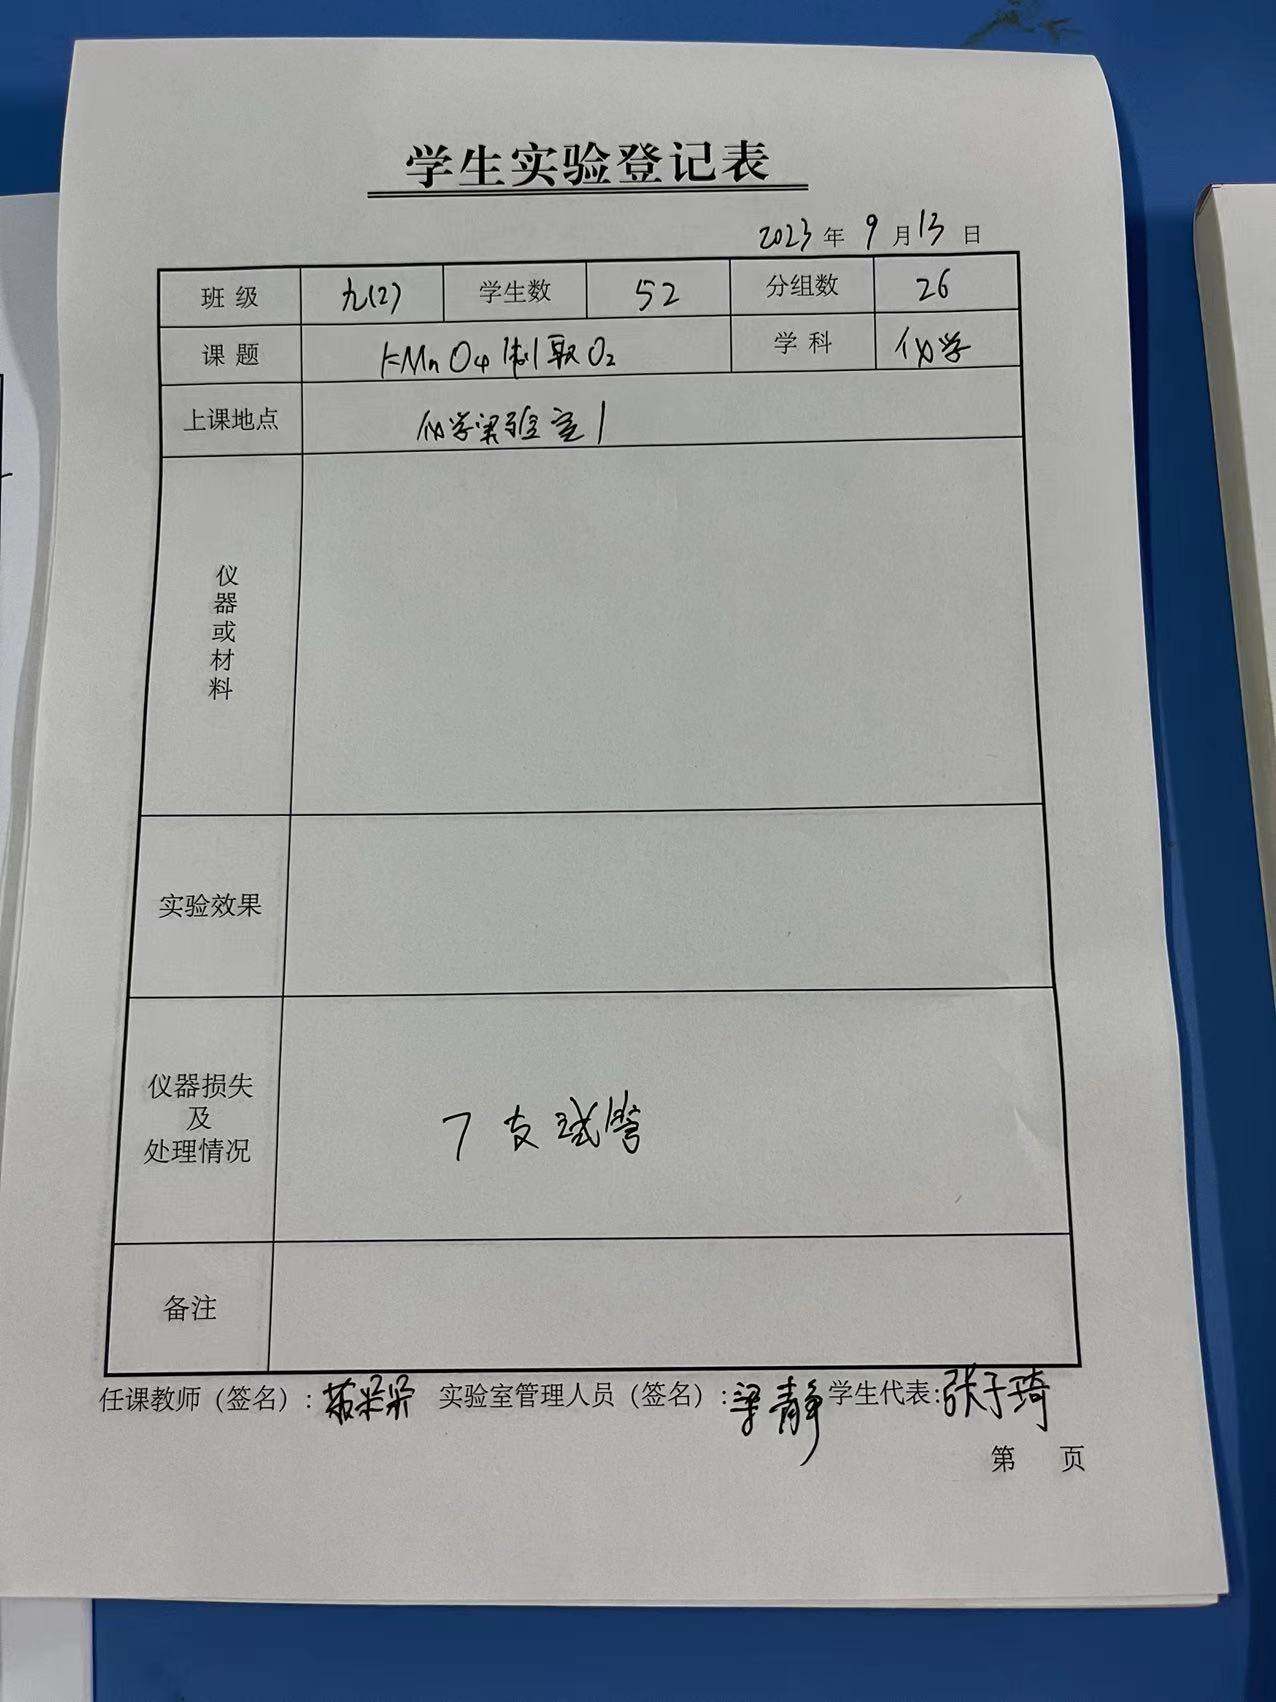 学生实验登记表
2023 年 9 月 13 日
班级 九(2) 学生数 52 分组数 26
课题 KMnO4制取O2 学科 化学
上课地点 化学实验室1
仪器或材料
实验效果
仪器损失
及
处理情况
7支试管
备注
任课教师（签名）: 实验室管理人员（签名）:梁静 学生代表:张子琦
第 页